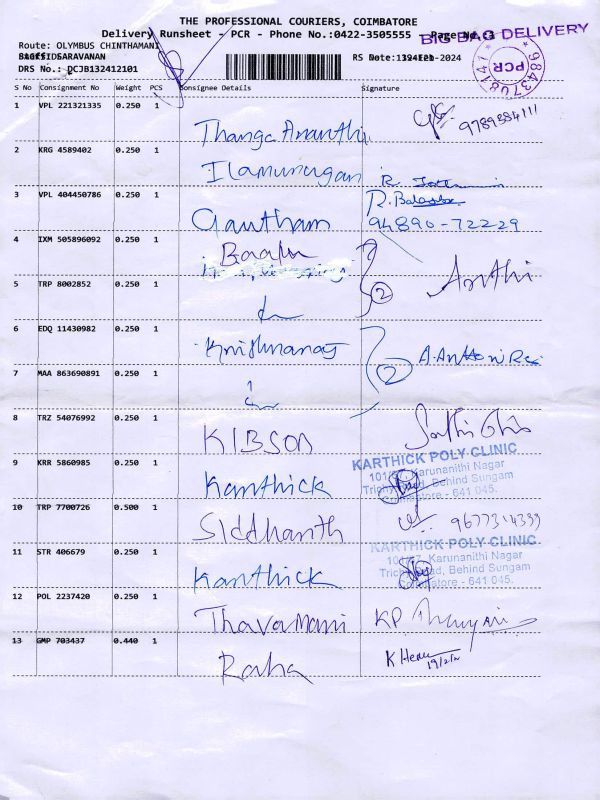 THE PROFESSIONAL COURIERS, COIMBATORE
Delivery Runsheet - PCR - Phone No.:0422-3505555
BIG BAG DELIVERY
Route: OLYMBUS CHINTHAMANI
SARAVANAN
DRS No.: PCJB132412101
PCR
9843708141
S No Consignment No Weight PCS Consignee Details Signature
1 VPL 221321335 0.250 1 Thanga Ananthi
2 KRG 4589402 0.250 1 Ilamurugan
3 VPL 404450786 0.250 1 Gautham 94890-72229
4 IXM 505896092 0.250 1 Baalu Arthi
2
5 TRP 8002852 0.250 1
6 EDQ 11430982 0.250 1 Krishnaraj
2
7 MAA 863690891 0.250 1
8 TRZ 54076992 0.250 1 KIBSON
9 KRR 5860985 0.250 1 Karthick
KARTHICK POLY CLINIC
101/67, Karunanithi Nagar
Trichy Road, Behind Sungam
Coimbatore - 641 045.
10 TRP 7700726 0.500 1 Siddhanth
11 STR 406679 0.250 1 Karthick
KARTHICK POLY CLINIC
101/67, Karunanithi Nagar
Trichy Road, Behind Sungam
Coimbatore - 641 045.
12 POL 2237420 0.250 1 Thavamani
13 GMP 703437 0.440 1 Raha